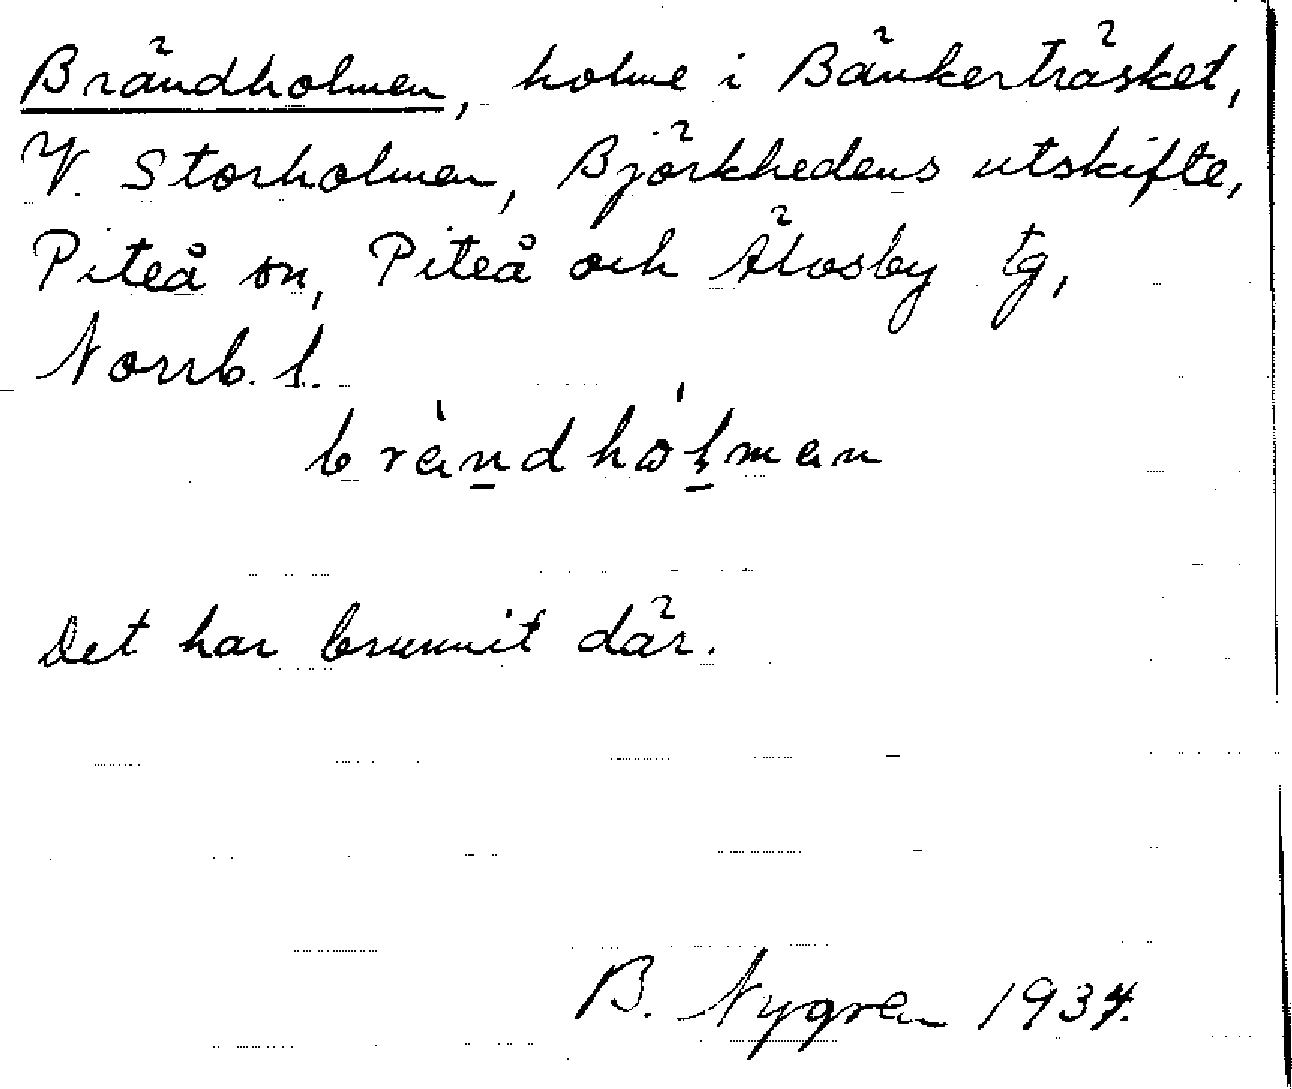 Brändholmen, holme i Bänkerträsket,
V. Storholmen, Björkhedens utskifte,
Piteå sn, Piteå och Älvsby tg,
Norrb. l.
brändhólman
Det har brunnit där.
B. Nygren 1937.